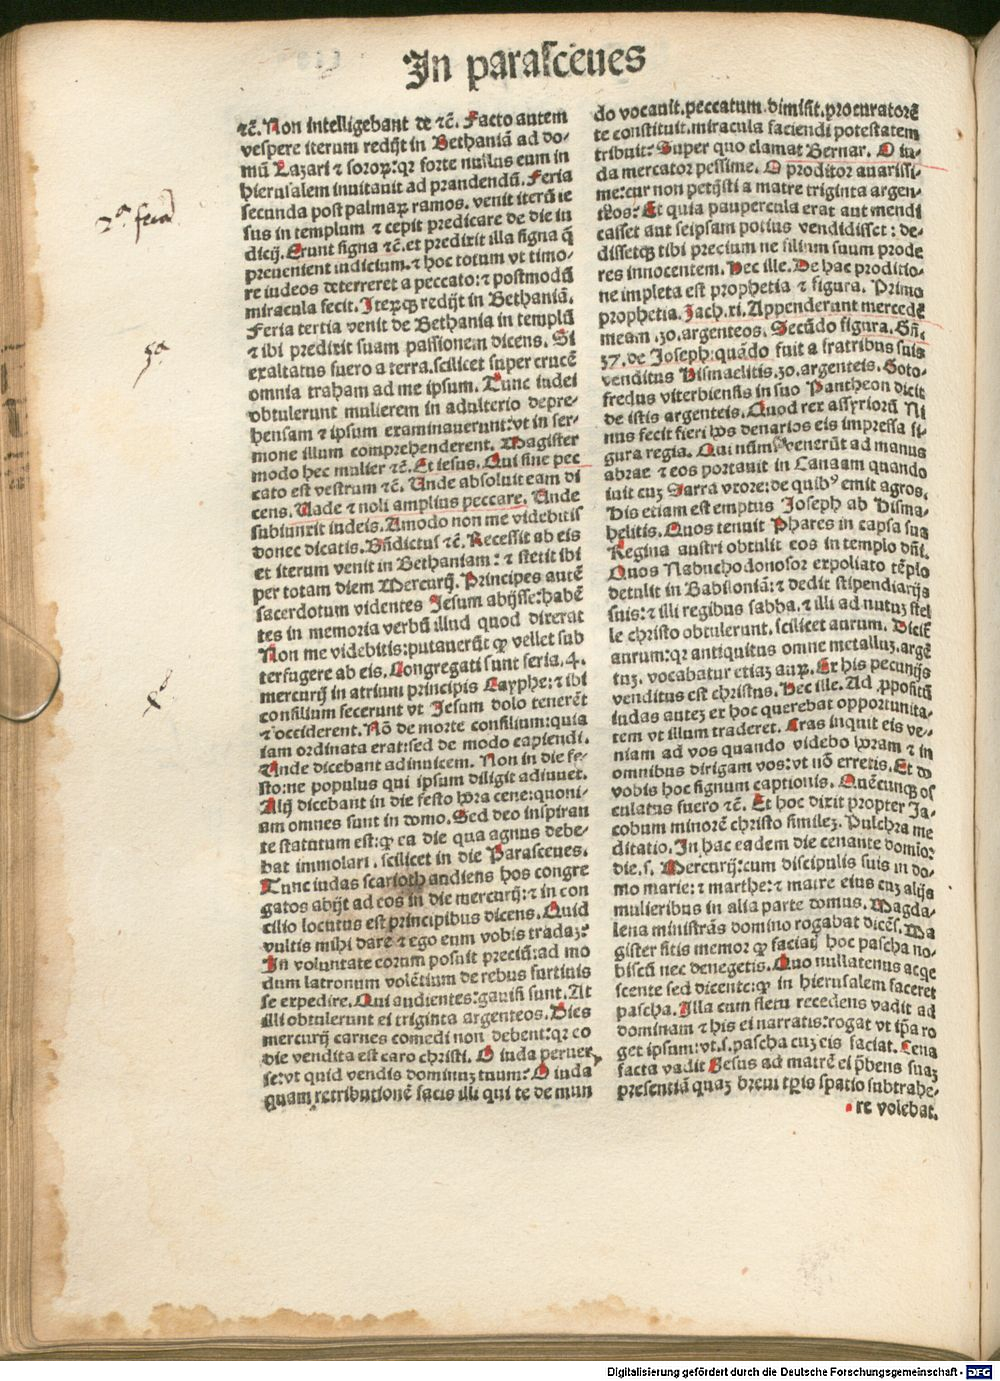 In parasceues
⁊cẽ. Non intelligebant de ⁊cẽ. Facto autem
vespere iterum redijt in Bethaniã ad do-
mũ Lazari ⁊ soroꝝ: qr forte nullus eum in
hierusalem inuitauit ad prandendũ. Feria
secunda post palmaꝝ ramos. venit iterũ ie
sus in templum ⁊ cepit predicare de die iu
dicij. Erunt signa ⁊cẽ. et predixit illa signa q̃
preuenient iudicium. ⁊ hoc totum vt timo-
re iudeos deterreret a peccato: ⁊ postmodũ
miracula fecit. Iteꝝqꝫ redijt in Bethaniã.
Feria tertia venit de Bethania in templũ
⁊ ibi predixit suam passionem dicens. Si
exaltatus fuero a terra. scilicet super crucẽ
omnia traham ad me ipsum. Tunc iudei
obtulerunt mulierem in adulterio depre-
hensam ⁊ ipsum examinauerunt: vt in ser-
mone illum comprehenderent. Magister
modo hec mulier ⁊cẽ. Et iesus. Qui sine pec
cato est vestrum ⁊cẽ. Unde absoluit eam di
cens. Uade ⁊ noli amplius peccare. Unde
subiunxit iudeis. Amodo non me videbitis
donec dicatis. Bñdictus ⁊cẽ. Recessit ab eis
et iterum venit in Bethaniam: ⁊ stetit ibi
per totam diem Mercurij. Principes autẽ
sacerdotum videntes Jesum abijsse: habẽ
tes in memoria verbũ illud quod dixerat
Non me videbitis: putauerũt ꝙ vellet sub
terfugere ab eis. Congregati sunt feria. 4.
mercurij in atrium principis Cayphe: ⁊ ibi
consilium fecerunt vt Jesum dolo tenerẽt
⁊ occiderent. Nõ de morte consilium: quia
iam ordinata erat: sed de modo capiendi.
Unde dicebant adinuicem. Non in die fe-
sto: ne populus qui ipsum diligit adiuuet.
Alij dicebant in die festo hora cene: quoni-
am omnes sunt in domo. Sed deo inspiran
te statutum est: ꝙ ea die qua agnus debe-
bat immolari. scilicet in die Parasceues.
Tunc iudas scarioth audiens hos congre
gatos abijt ad eos in die mercurij: ⁊ in con
cilio locutus est principibus dicens. Quid
vultis mihi dare ⁊ ego eum vobis tradaꝫ:
In voluntate eorum posuit preciũ: ad mo
dum latronum volẽtium de rebus furtiuis
se expedire. Qui audientes: gauisi sunt. At
illi obtulerunt ei triginta argenteos. Dies
mercurij carnes comedi non debent: qr eo
die vendita est caro christi. O iuda peruer
se: vt quid vendis dominuꝫ tuum: O iuda
quam retributionẽ facis illi qui te de mun
do vocauit. peccatum dimisit. procuratorẽ
te constituit. miracula faciendi potestatem
tribuit: Super quo clamat Bernar. O iu-
da mercator pessime. O proditor auarissi-
me: cur non petijsti a matre triginta argen-
teos: Et quia paupercula erat aut mendi
casset aut seipsam potius vendidisset: de-
dissetqꝫ tibi precium ne filium suum prode
res innocentem. Hec ille. De hac proditio-
ne impleta est prophetia ⁊ figura. Primo
prophetia. Zach. xi. Appenderunt mercedẽ
meam .30. argenteos. Secũdo figura. Gñ.
37. de Joseph: quãdo fuit a fratribus suis
venditus Hismaelitis. 30. argenteis. Goto-
fredus viterbiensis in suo Pantheon dicit
de istis argenteis. Quod rex assyriorũ Ni
nus fecit fieri hos denarios eis impressa fi-
gura regia. Qui nũmi venerũt ad manus
abrae ⁊ eos portauit in Canaam quando
iuit cuꝫ Sarra vxore: de quibꝰ emit agros.
His etiam est emptus Joseph ab Hisma-
helitis. Quos tenuit Phares in capsa sua
Regina austri obtulit eos in templo dñi.
Quos Nabuchodonosor expoliato tẽplo
detulit in Babiloniã: ⁊ dedit stipendiarijs
suis: ⁊ illi regibus sabba. ⁊ illi ad nutuꝫ stel
le christo obtulerunt. scilicet aurum. Dicit̃
aurum: qr antiquitus omne metalluꝫ. argẽ
tuꝫ. vocabatur etiaꝫ auꝝ. Ex his pecunijs
venditus est christus. Hec ille. Ad ꝓpositũ
iudas auteꝫ ex hoc querebat opportunita-
tem vt illum traderet. Cras inquit eis ve-
niam ad vos quando videbo horam ⁊ in
omnibus dirigam vos: vt nõ erretis. Et do
vobis hoc signum captionis. Quẽcunqꝫ os
culatus fuero ⁊cẽ. Et hoc dixit propter Ja-
cobum minorẽ christo simileꝫ. Pulchra me
ditatio. In hac eadem die cenante domino:
die. s. Mercurij: cum discipulis suis in do-
mo marie: ⁊ marthe: ⁊ matre eius cuꝫ alijs
mulieribus in alia parte domus. Magda-
lena ministrãs domino rogabat dicẽs. Ma
gister sitis memor ꝙ faciatis hoc pascha no-
biscũ nec denegetis. Quo nullatenus acqe
scente sed dicente: ꝙ in hierusalem faceret
pascha. Illa cum fletu recedens vadit ad
dominam ⁊ his ei narratis: rogat vt ip̃a ro
get ipsum: vt. s. pascha cuꝫ eis faciat. Cena
facta vadit Jesus ad matrẽ ei p̃bens suaꝫ
presentiã quaꝫ breui tp̃is spatio subtrahe-
re volebat.
2ª feria
5ª
Digitalisierung gefördert durch die Deutsche Forschungsgemeinschaft - DFG